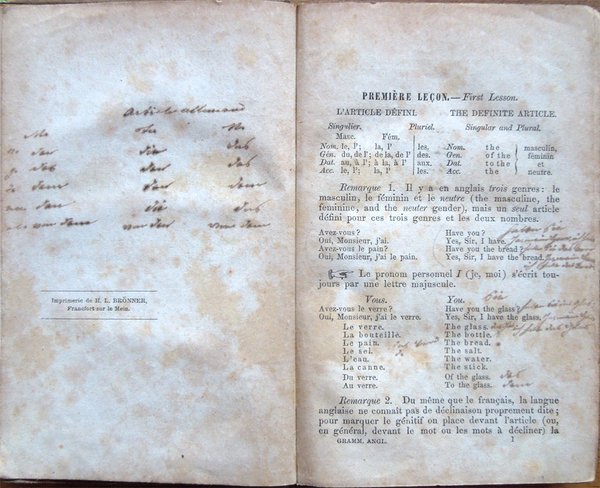 Article allemand
der
den den das
den den des
dem
die das
von dem von dem
Imprimerie de H. L. BRÖNNER,
Francfort-sur le Mein.
PREMIÈRE LEÇON.—First Lesson.
L'ARTICLE DÉFINI. THE DEFINITE ARTICLE.
Singulier. Pluriel. Singular and Plural.
Masc. Fém.
Nom. le, l'; la, l' les, Nom. the masculin,
Gén. du, de l'; de la, de l' des. Gen. of the féminin
Dat. au, à l'; à la, à l' aux. Dat. to the et
Acc. le, l'; la, l' les, Acc. the neutre.
Remarque 1. Il y a en anglais trois genres: le
masculin, le féminin et le neutre (the masculine, the
féminine, and the neuter gender), mais un seul article
défini pour ces trois genres et les deux nombres.
Avez-vous? Have you?
Oui, Monsieur, j'ai. Yes, Sir, I have.
Avez-vous le pain? Have you the bread?
Oui, Monsieur, j'ai le pain. Yes, Sir, I have the bread.
☞ Le pronom personnel I (je, moi) s'écrit tou-
jours par une lettre majuscule.
Vous. You. Sie
Avez-vous le verre? Have you the glass?
Oui, Monsieur, j'ai le verre. Yes, Sir, I have the glass.
Le verre. The glass.
La bouteille. The bottle.
Le pain. The bread.
Le sel. The salt.
L'eau. The water.
La canne. The stick.
Du verre. Of the glass. des
Au verre. To the glass. dem
Remarque 2. Du même que le français, la langue
anglaise ne connaît pas de déclinaison proprement dite;
pour marquer le génitif on place devant l'article (ou,
en général, devant le mot ou les mots à décliner) la
GRAMM. ANGL. 1